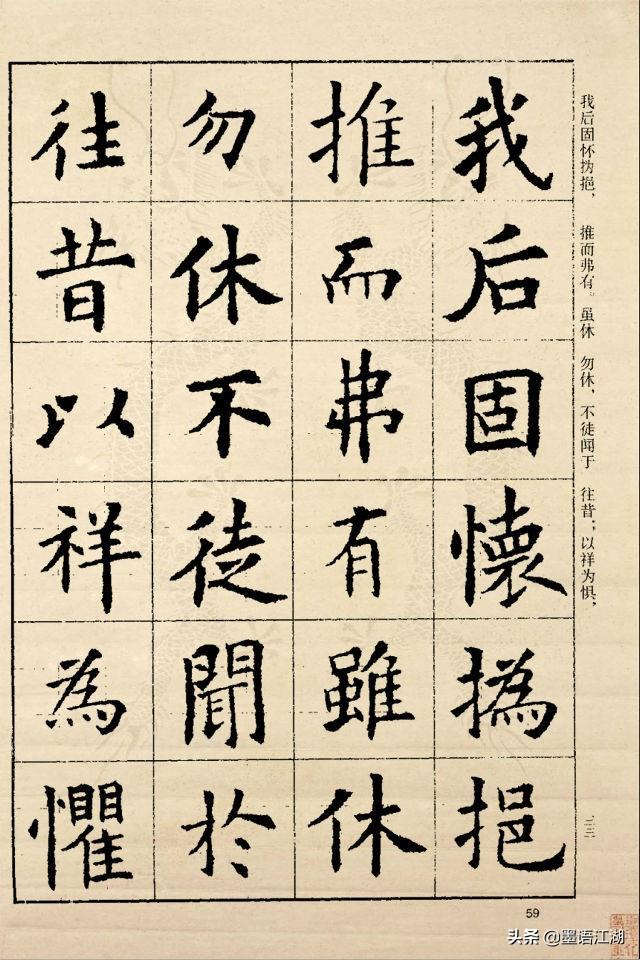 我后固懷撝挹
推而弗有雖休
勿休不徒聞於
徃昔以祥為懼
我后固怀㧑挹，推而弗有。虽休勿休，不徒闻于往昔；以祥为惧，
二三
59
头条 @墨语江湖